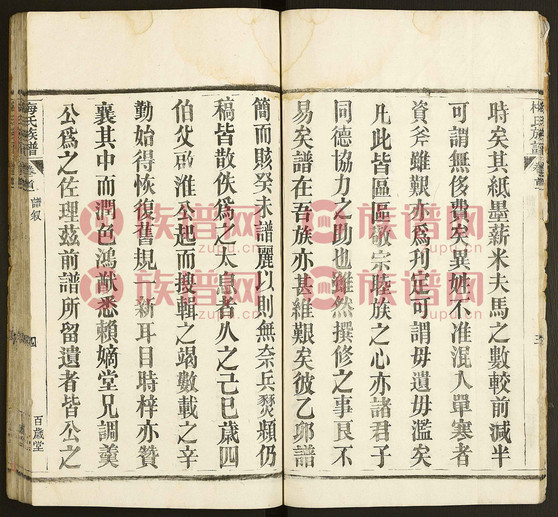 時矣其紙墨薪米夫馬之數較前減半
可謂無侈費矣異姓不准混入單寒者
資斧雖艱亦爲刋定可謂毋遺毋濫矣
凡此皆區區敬宗睦族之心亦諸君子
同德協力之助也雖然撰修之事良不
易矣譜在吾族亦甚維艱矣彼乙卯譜
簡而賅癸未譜麗以則無奈兵燹頻仍
稿皆散佚爲之太息者久之己巳歲四
伯父 淮公起而搜輯之竭數載之辛
勤始得恢復舊規一新耳目時梓亦贊
襄其中而潤色鴻猷悉賴嫡堂兄調羹
公爲之佐理茲前譜所留遺者皆公之
梅氏族譜
卷首
譜叙
四
百歲堂
族谱网
zupu.cn